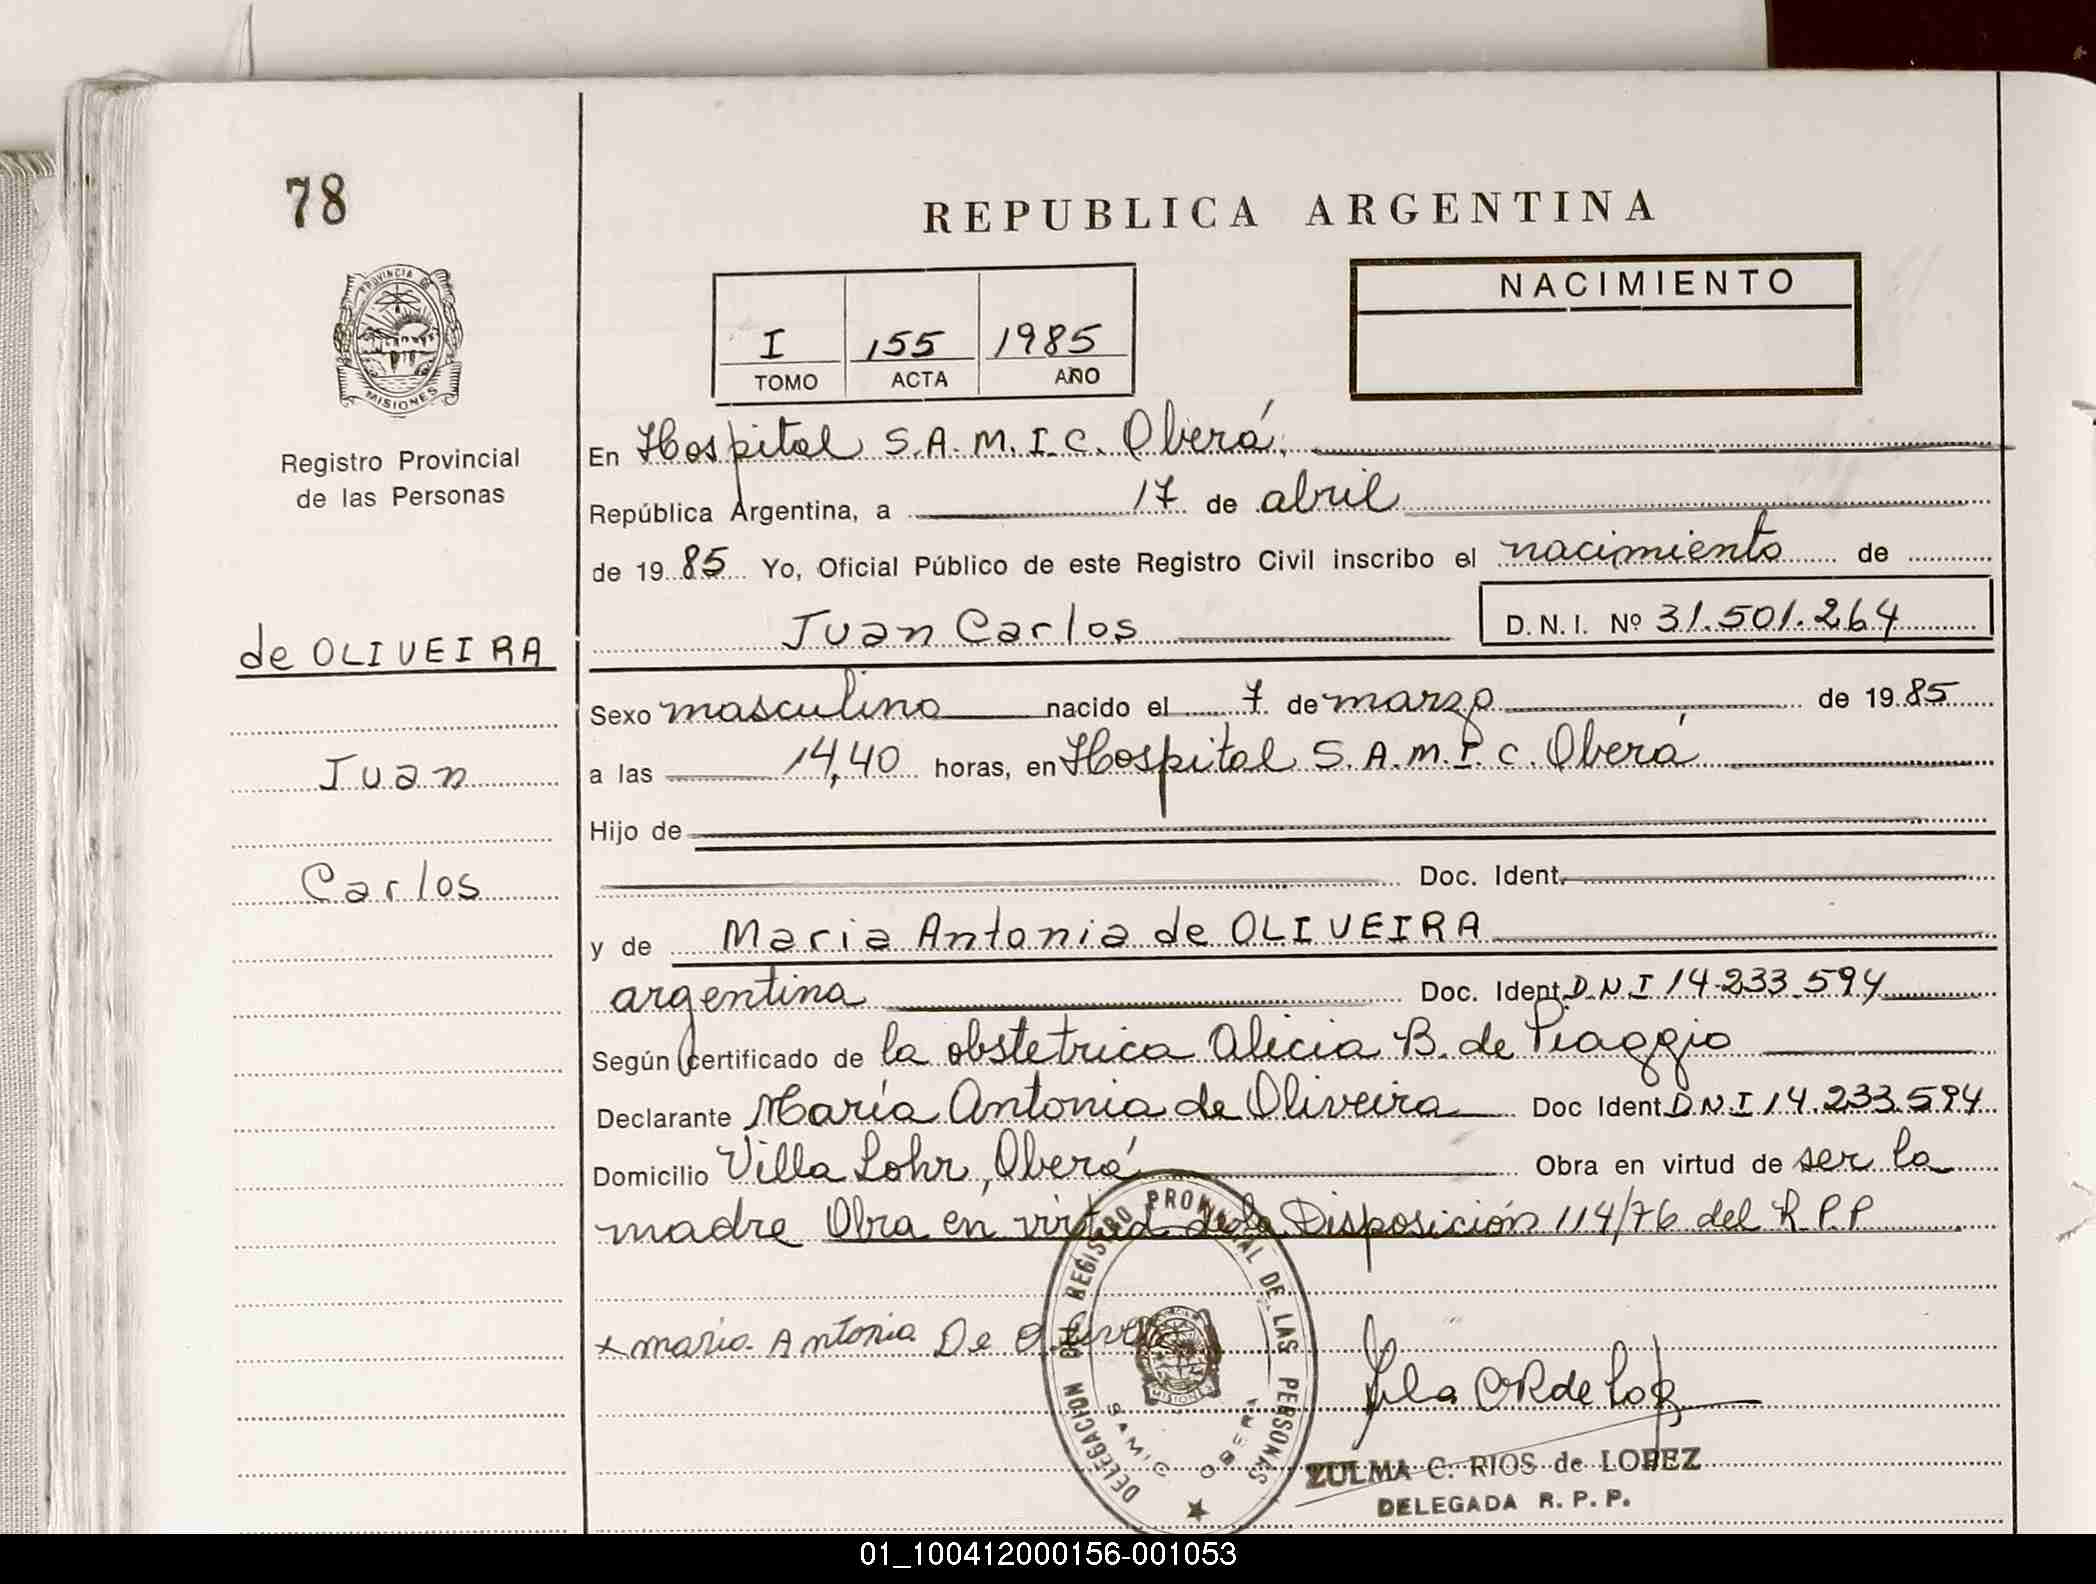 78
REPUBLICA ARGENTINA
PROVINCIA DE
MISIONES
NACIMIENTO
I 155 1985
TOMO ACTA AÑO
Registro Provincial
de las Personas
En Hospital S.A.M.I.C. Oberá.
República Argentina, a 17 de abril
de 1985 Yo, Oficial Público de este Registro Civil inscribo el nacimiento de
Juan Carlos D.N.I. Nº 31.501.264
de OLIVEIRA
Juan
Carlos
Sexo masculino nacido el 7 de marzo de 1985
a las 14,40 horas, en Hospital S.A.M.I.C. Oberá
Hijo de
Doc. Ident.
y de Maria Antonia de OLIVEIRA
argentina Doc. Ident D.N.I 14.233.594
Según certificado de la obstetrica Alicia B. de Piaggio
Declarante María Antonia de Oliveira Doc Ident D.N.I 14.233.594
Domicilio Villa Lohr, Oberá Obra en virtud de ser la
madre Obra en virtud de la Disposición 114/76 del R.P.P
x maria Antonia De Oliveira
DELEGACION DEL REGISTRO PROVINCIAL DE LAS PERSONAS
MISIONES
SAMIC OBERA
ZULMA C. RIOS de LOPEZ
DELEGADA R.P.P.
01_100412000156-001053